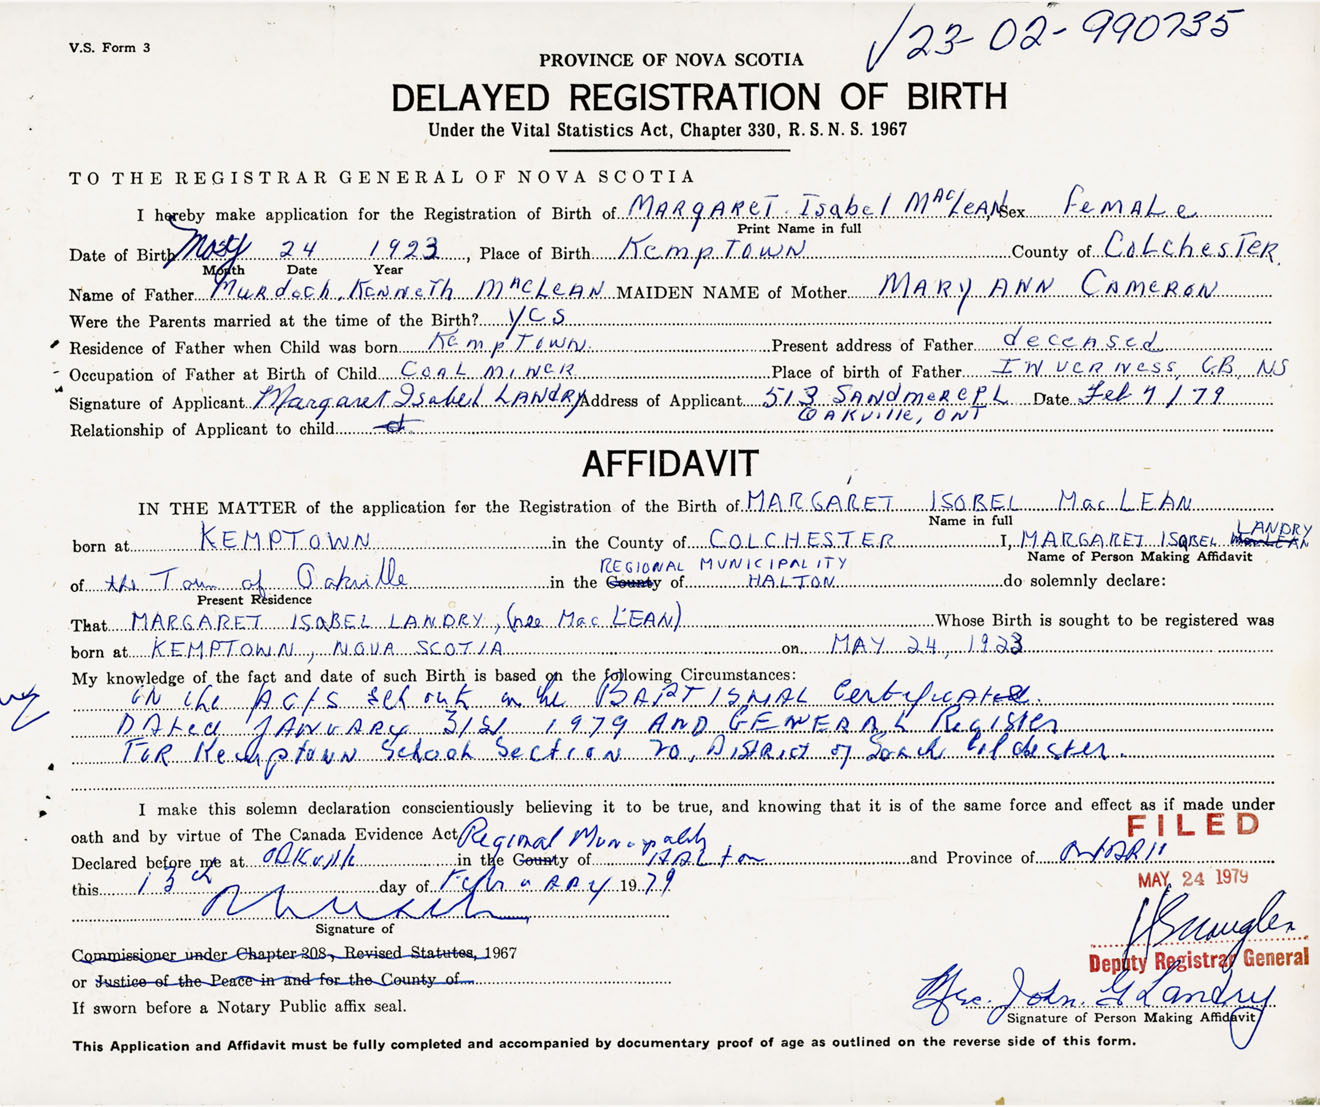 V.S. Form 3
√23-02-990735
PROVINCE OF NOVA SCOTIA
DELAYED REGISTRATION OF BIRTH
Under the Vital Statistics Act, Chapter 330, R. S. N. S. 1967
TO THE REGISTRAR GENERAL OF NOVA SCOTIA
I hereby make application for the Registration of Birth of MARGARET Isabel MacLEAN Sex FeMALe
Print Name in full
Date of Birth May 24 1923, Place of Birth KempTOWN County of COLchesTER
Month Date Year
Name of Father Murdoch Kenneth MacLEAN MAIDEN NAME of Mother MARY ANN CAMERON
Were the Parents married at the time of the Birth? yes
Residence of Father when Child was born KempTOWN Present address of Father deceased
Occupation of Father at Birth of Child COAL MINER Place of birth of Father INVERNESS, CB, NS
Signature of Applicant Margaret Isabel LANDRY Address of Applicant 513 SANDmere PL Date Feb 7/79
OAKVILLE, ONT
Relationship of Applicant to child
AFFIDAVIT
IN THE MATTER of the application for the Registration of the Birth of MARGARET ISOBEL MacLEAN
Name in full
LANDRY
born at KEMPTOWN in the County of COLCHESTER I, MARGARET ISOBEL MacLEAN
Name of Person Making Affidavit
REGIONAL MUNICIPALITY
of the Town of Oakville in the County of HALTON do solemnly declare:
Present Residence
That MARGARET ISOBEL LANDRY, (nee MacLEAN) Whose Birth is sought to be registered was
born at KEMPTOWN, NOVA SCOTIA on MAY 24, 1923
My knowledge of the fact and date of such Birth is based on the following Circumstances:
ON the FACTS set out in the BAPTISMAL Certificate
DAted JANUARY 31st 1979 AND GENERAL Register
FOR Kemptown School Section 20, District of South Colchester.
I make this solemn declaration conscientiously believing it to be true, and knowing that it is of the same force and effect as if made under
oath and by virtue of The Canada Evidence Act
FILED
Regional Municipality
Declared before me at OAKville in the County of HALton and Province of ONTARIO
MAY 24 1979
this 13th day of February 1979
Signature of
Commissioner under Chapter 208, Revised Statutes, 1967
Deputy Registrar General
or Justice of the Peace in and for the County of
Mrs. John G Landry
If sworn before a Notary Public affix seal.
Signature of Person Making Affidavit
This Application and Affidavit must be fully completed and accompanied by documentary proof of age as outlined on the reverse side of this form.